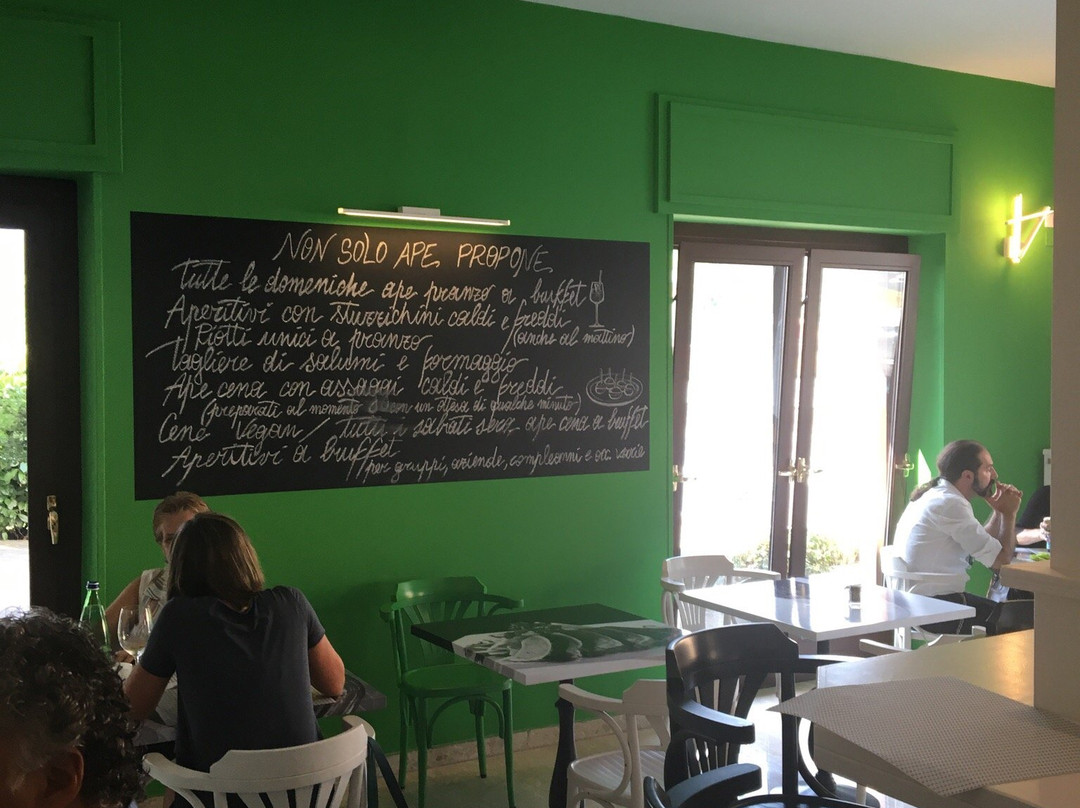 NON SOLO APE, PROPONE
Tutte le domeniche ape pranzo a buffet
Aperitivi con stuzzichini caldi e freddi
(anche al mattino)
Piatti unici a pranzo
Tagliere di salumi e formaggio
Ape cena con assaggi caldi e freddi
(preparati al momento con un attesa di qualche minuto)
Cene Vegan / Tutti i sabati sera ape cena a buffet
Aperitivi a buffet
per gruppi, aziende, compleanni e occ. varie